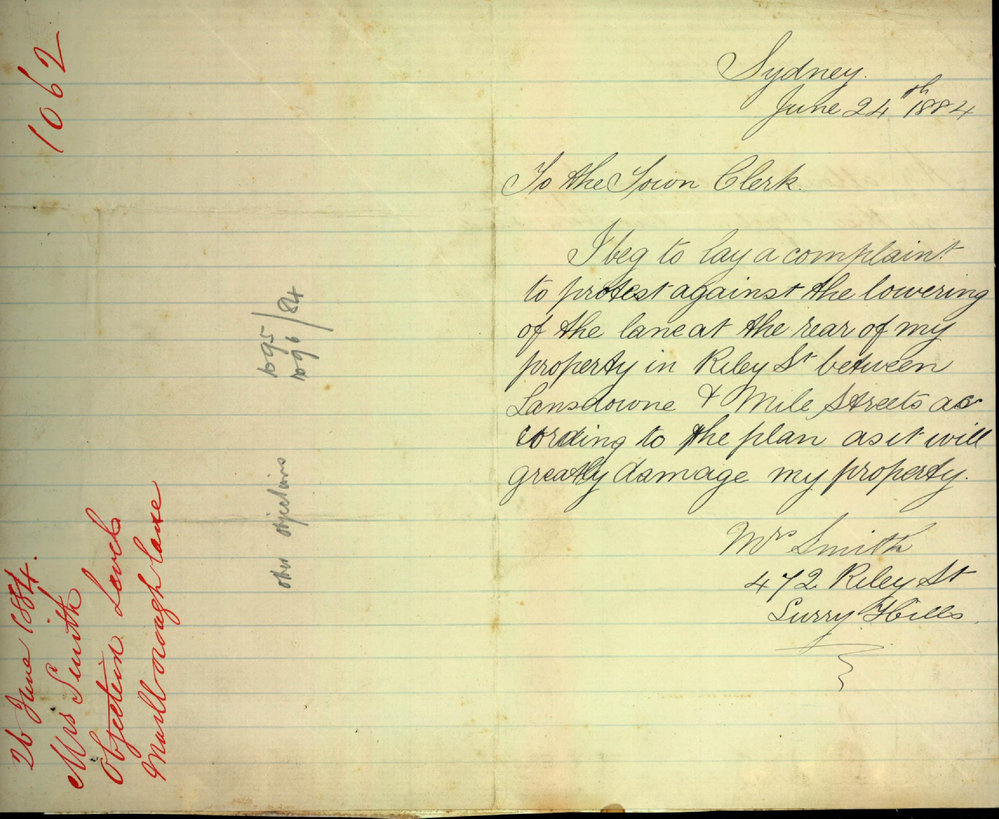 Sydney.
June 24th 1884
To the Town Clerk.
I beg to lay a complaint
to protest against the lowering
of the lane at the rear of my
property in Riley St between
Lansdowne & Mile Streets ac
cording to the plan as it will
greatly damage my property.
Mrs Smith
472 Riley St
Surry Hills.
1062
26 June 1884.
Mrs Smith
Objection Levels
Marlborough Lane
other objections 1095/84
1096